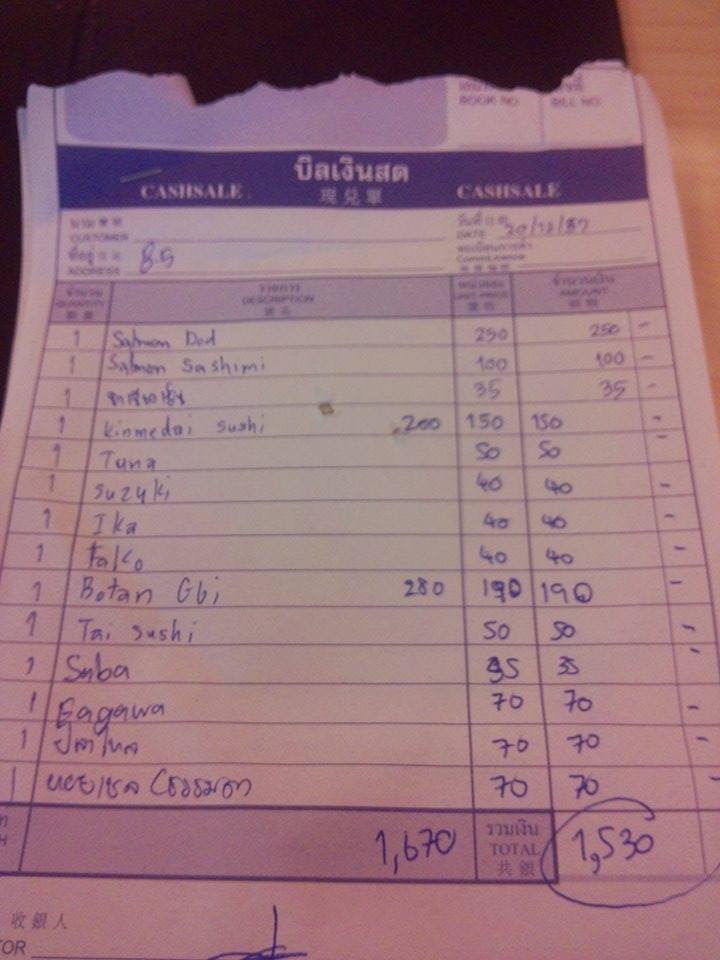 BOOK NO. BILL NO.
บิลเงินสด
CASHSALE 現兌單 CASHSALE
วันที่
CUSTOMER DATE 20/12/57
ที่อยู่ 85
ADDRESS
จำนวน รายการ จำนวนเงิน
QUANTITY DESCRIPTION UNIT PRICE AMOUNT
1 Salmon Don 250 250 -
1 Salmon Sashimi 100 100 -
1 35 35 -
1 kinmedai sushi 200 150 150 -
1 Tuna 50 50 -
1 Suzuki 40 40 -
1 Ika 40 40 -
1 tako 40 40 -
1 Botan Ebi 280 190 190 -
1 Tai sushi 50 50 -
1 Saba 35 35 -
1 Eagawa 70 70 -
1 ปลาไหล 70 70 -
1 หอยเชล (ธรรมดา 70 70 -
1,670 รวมเงิน 1,530
TOTAL
共銀
收銀人
TOR